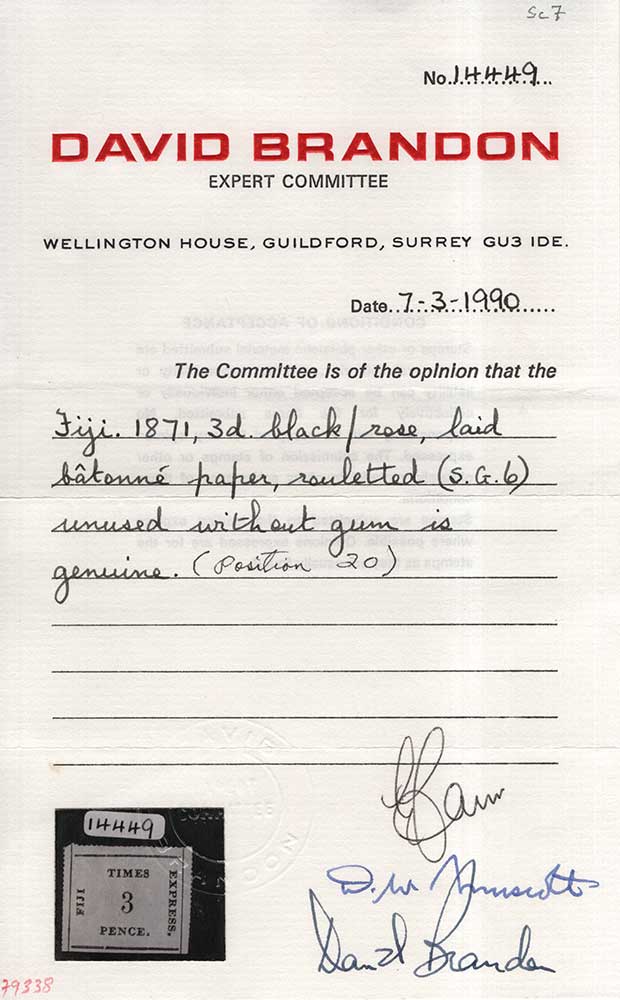 Sc 7
No. 14449
DAVID BRANDON
EXPERT COMMITTEE
WELLINGTON HOUSE, GUILDFORD, SURREY GU3 IDE.
Date. 7-3-1990
The Committee is of the opinion that the
Fiji. 1871, 3d. black/rose, laid
bâtonné paper, rouletted (S.G.6)
unused without gum is
genuine. (Position 20)
14449
FIJI
TIMES
3
PENCE.
EXPRESS.
David Brandon
79338